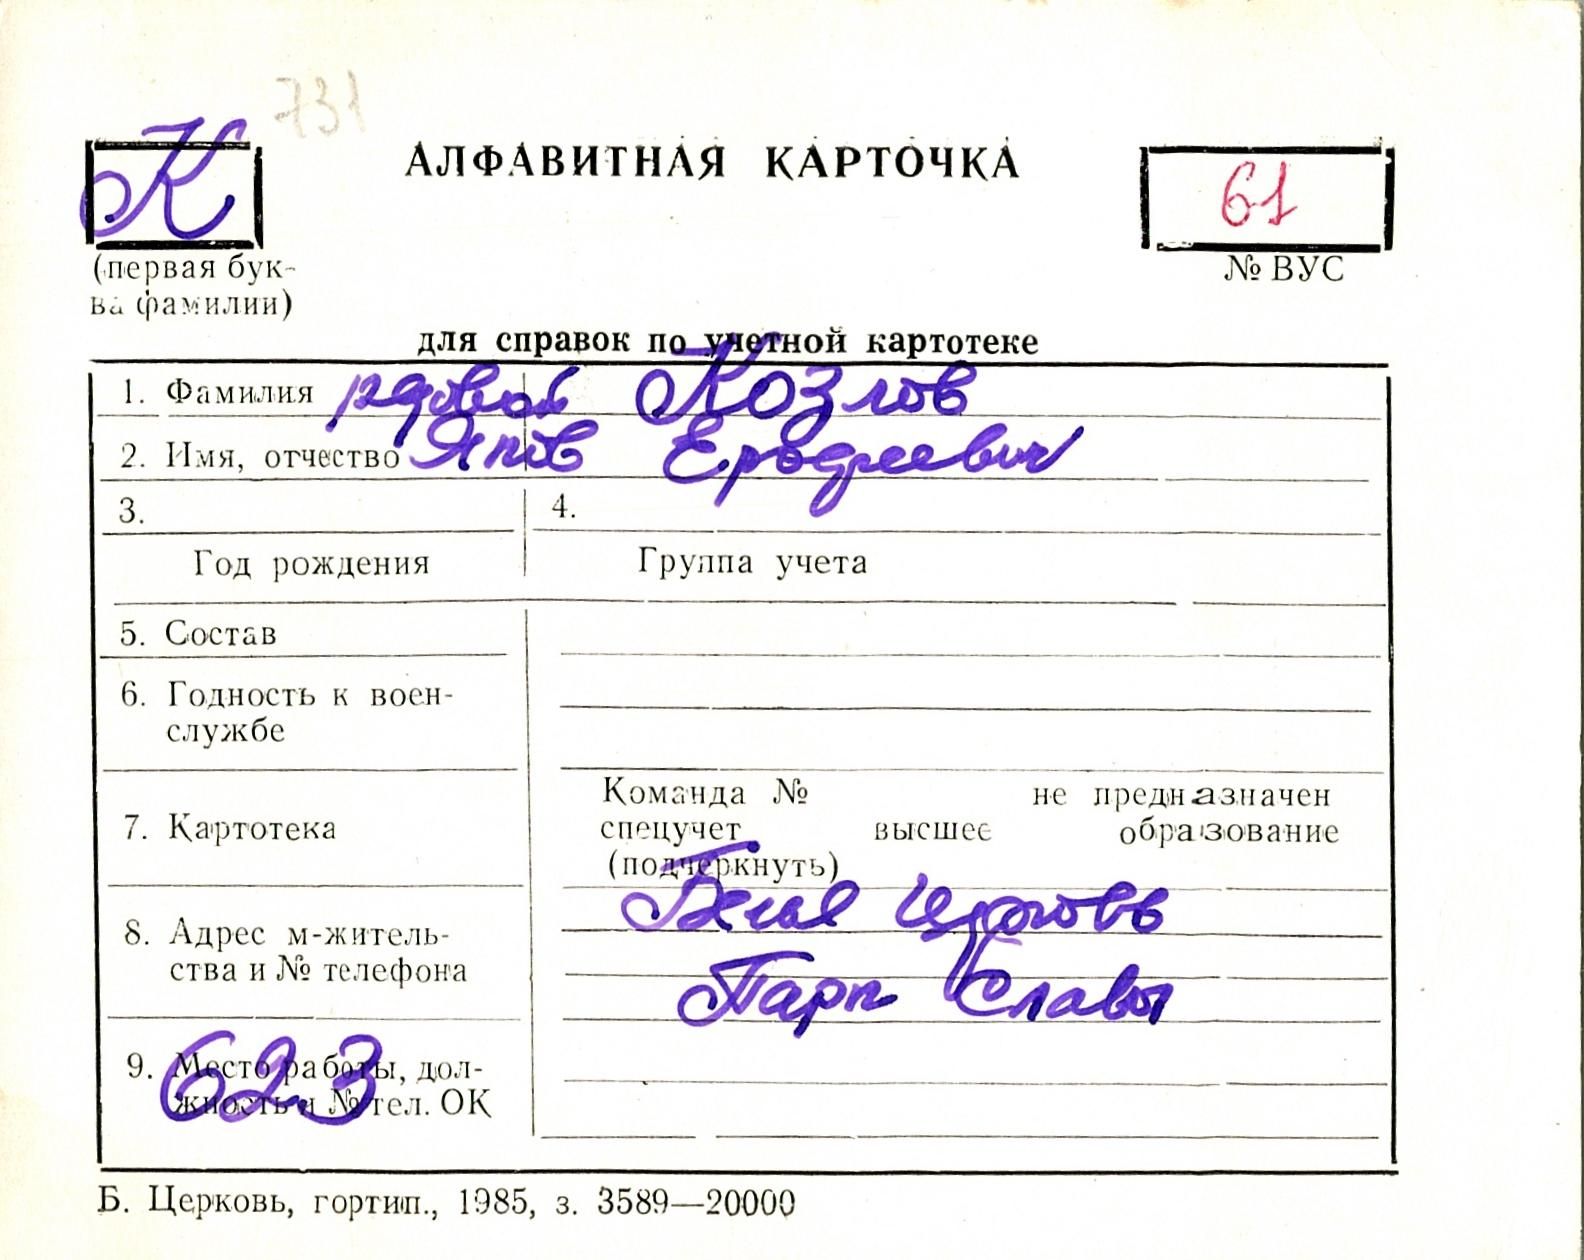 731
К
АЛФАВИТНАЯ КАРТОЧКА
61
(первая бук-
ва фамилии)
№ ВУС
для справок по учетной картотеке
1. Фамилия рядовой Козлов
2. Имя, отчество Яков Ерофеевич
3. 4.
Год рождения Группа учета
5. Состав
6. Годность к воен-
службе
7. Картотека
Команда № не предназначен
спецучет высшее образование
(подчеркнуть)
8. Адрес м-житель-
ства и № телефона
Белая Церковь
Парк Славы
9. Место работы, дол-
жность и № тел. ОК
623
Б. Церковь, гортип., 1985, з. 3589—20000